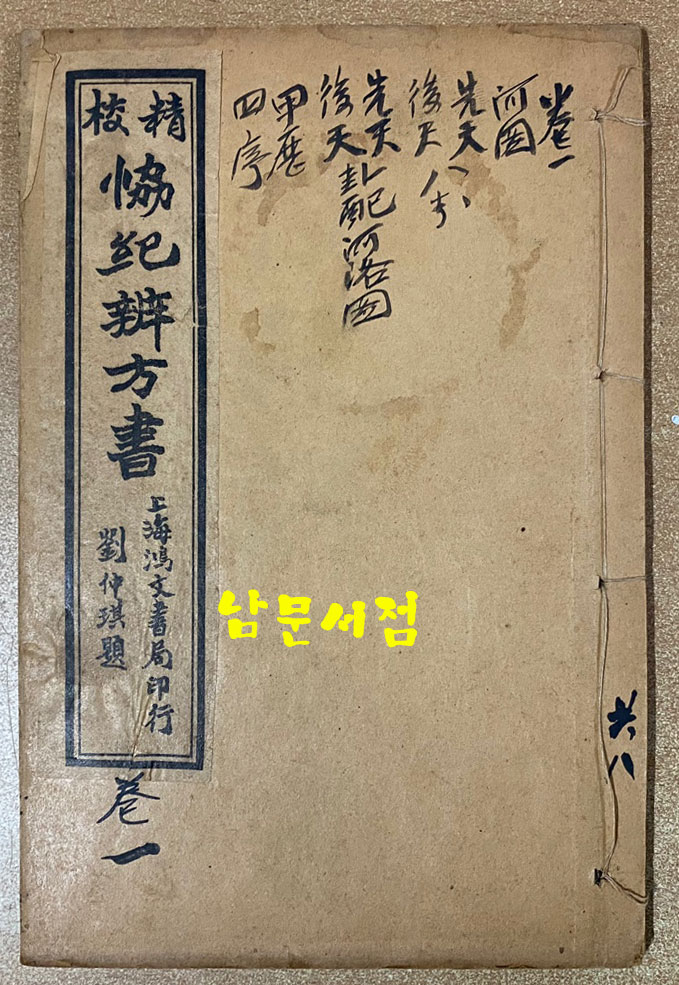 卷一
河圖
先天
後天八卦
先天
後天卦配河洛圖
甲歷
四序
精校
恊紀辨方書
上海鴻文書局印行
劉仲琪題
卷一
共八
남문서점